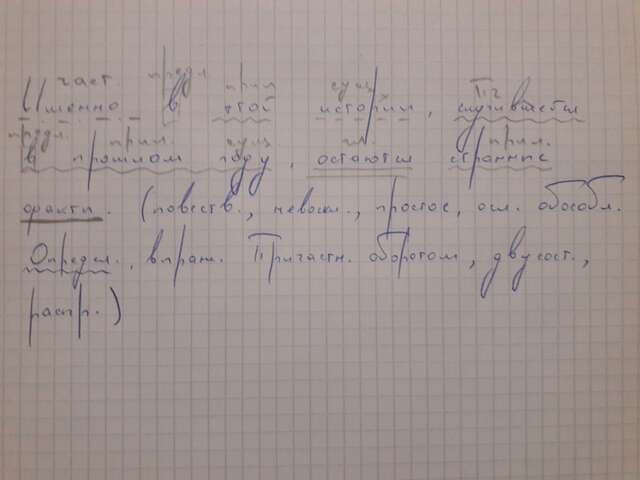 част. предл. прил. сущ. Пч
Именно в этой истории, случившейся
предл. прил. сущ. гл. прил.
в прошлом году, остаются странные
факты. (повеств., невоскл., простое, осл. обособл.
Определ., выраж. Причастн. оборотом, двусост.,
распр.)